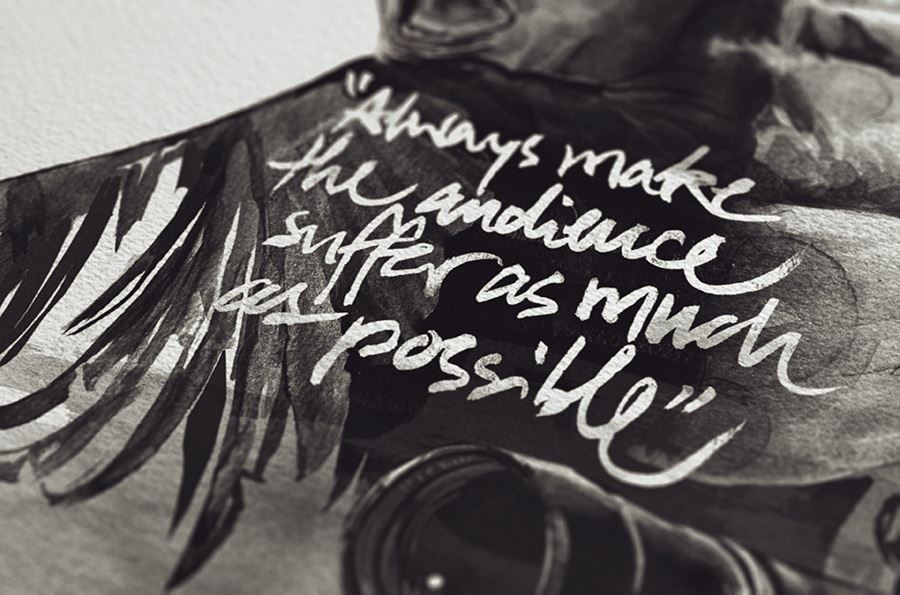 "Always make
the audience
suffer as much
as possible"